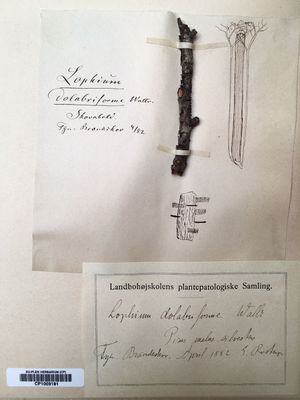 Lophium
dolabriforme Wallr.
Skovæble.
Fyn. Brandskov 4/82
Landbohøjskolens plantepatologiske Samling.
Lophium dolabriforme Wallr
Pirus malus silvestris
Fyn. Brandskov. April 1882 E. Rostrup
CP1003181